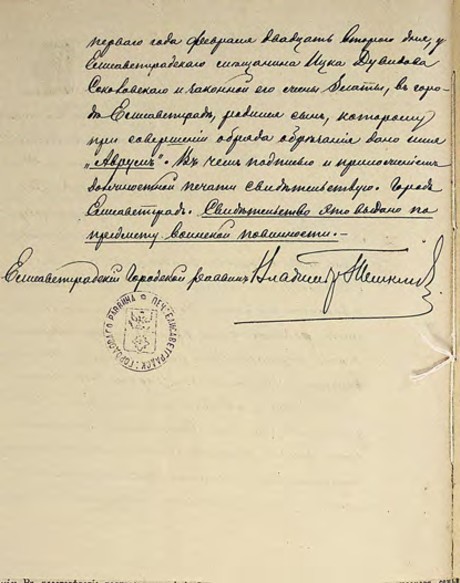 перваго года февраля двадцать втораго дня, у
Елисаветградскаго мещанина Ицка Дувидова
Соколовскаго и законной его жены Златы, въ горо-
дѣ Елисаветградѣ, родился сынъ, которому
при совершеніи обряда обрѣзанія дано имя
„Аврумъ". Въ чемъ подписью и приложеніемъ
должностной печати свидѣтельствую. Городъ
Елисаветградъ. Свидѣтельство это выдано по
предмету воинской повинности.—
Елисаветградскій Городской раввинъ Владиміръ
ПЕЧ. ЕЛИСАВЕТГРАДСК. ГОРОДОВАГО РАВВИНА